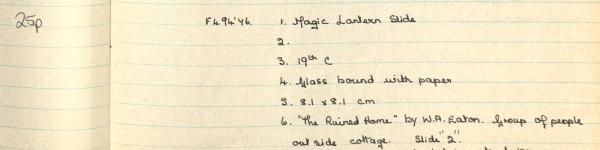 25p
F494'46. 1. Magic Lantern Slide
2.
3. 19th C
4. Glass bound with paper
5. 8.1 x 8.1 cm
6. "The Ruined Home" by W.A. Eaton. Group of people
out side cottage. Slide "2".